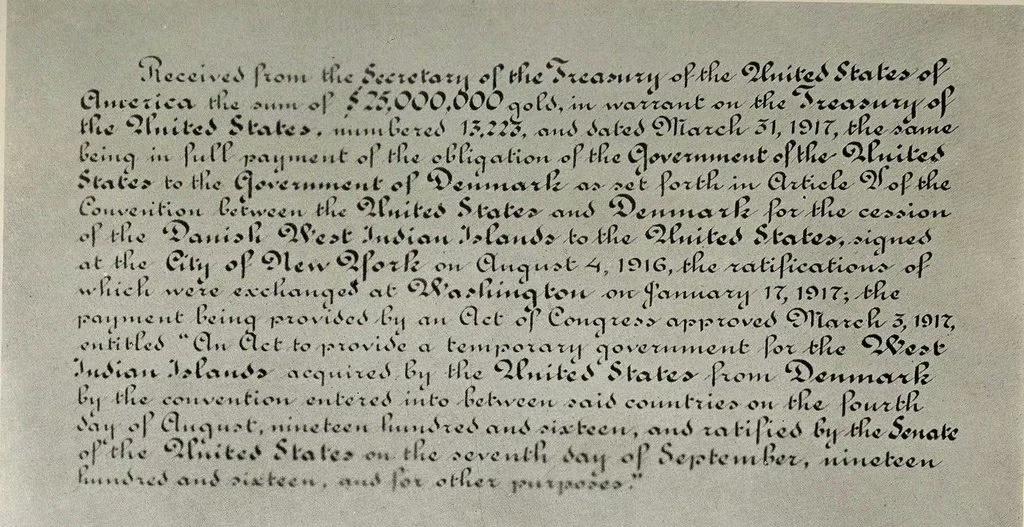 Received from the Secretary of the Treasury of the United States of
America the sum of $25,000,000 gold, in warrant on the Treasury of
the United States, numbered 13,223, and dated March 31, 1917, the same
being in full payment of the obligation of the Government of the United
States to the Government of Denmark as set forth in Article V of the
Convention between the United States and Denmark for the cession
of the Danish West Indian Islands to the United States, signed
at the City of New York on August 4, 1916, the ratifications of
which were exchanged at Washington on January 17, 1917; the
payment being provided by an Act of Congress approved March 3, 1917,
entitled "An Act to provide a temporary government for the West
Indian Islands acquired by the United States from Denmark
by the convention entered into between said countries on the fourth
day of August, nineteen hundred and sixteen, and ratified by the Senate
of the United States on the seventh day of September, nineteen
hundred and sixteen, and for other purposes."